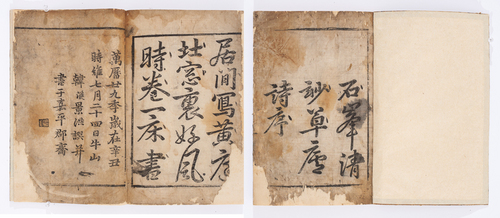 石峯清
妙草廬
詩序
居閒寫黃庭
北窓裏好風
時卷一床書
萬曆廿九季歲在辛丑
時維七月二十四日牛山
韓濩景洪謾幷
書于嘉平郡齋